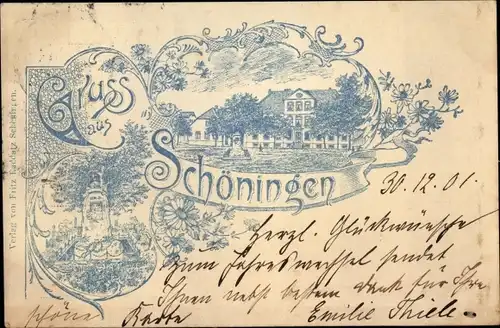 Gruss
aus
Schöningen
30.12.01.
Herzl. Glückwünsche
zum Jahreswechsel sendet
Ihnen nebst bestem Dank für Ihre
schöne Karte Emilie Thiele
Verlag von Fritz Schöningen.